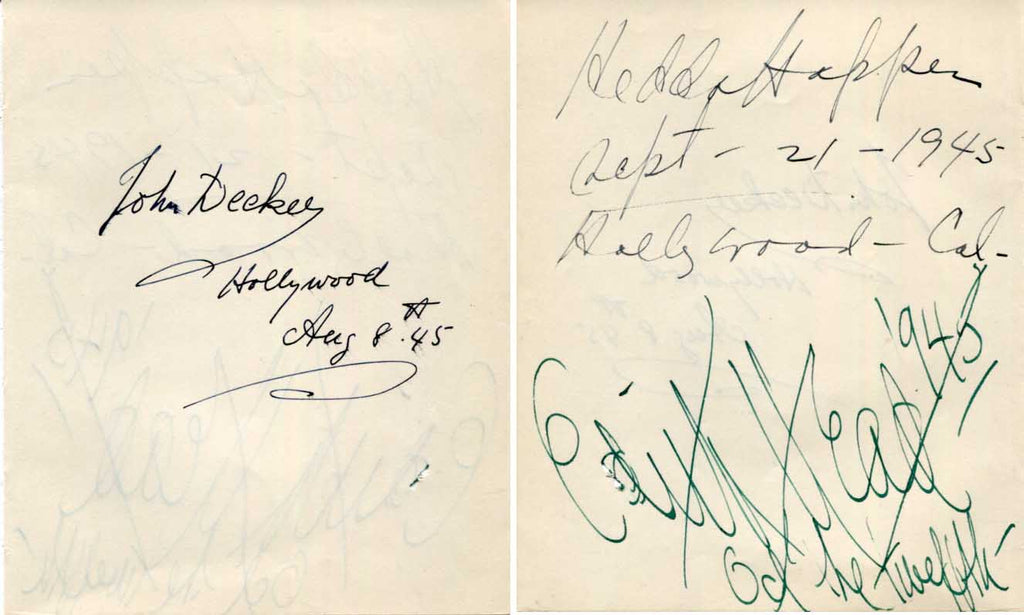 John Decker
Hollywood
Aug 8th. 45
Hedda Hopper
Sept - 21 - 1945
Hollywood - Cal-
Edith Head '945
Oct the Twelfth